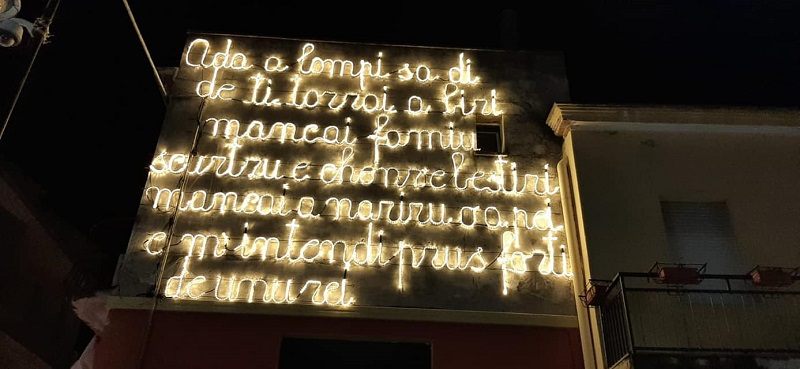 Ada a lompi sa di
de ti torrai a biri
mancai famiu
scurtzu e chenz'e bestiri
mancai a
e mi intendi prus forti
de unu rei